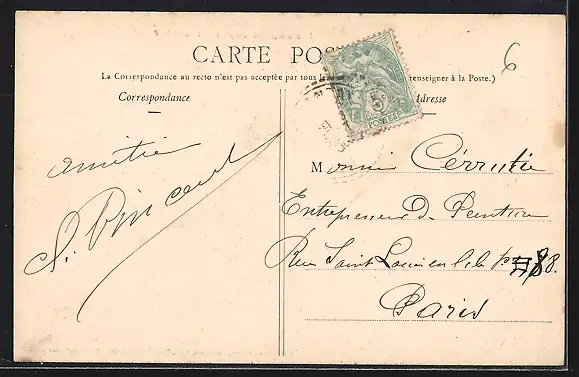 CARTE POS
La Correspondance au recto n'est pas acceptée par tous le renseigner à la Poste.)
6
Correspondance
dresse
5
POSTES
amitié
Monsieur Cérrutie
Entrepreneur D. Peinture
Rue Saint Louis en l'ile 88.
Paris